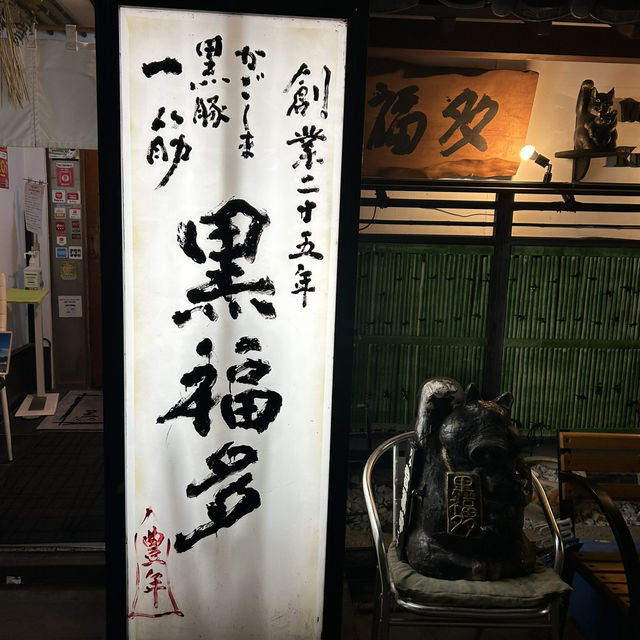 創業二十五年
かごしま
黒豚
一筋
黒福多
豊年
福多
黒福多